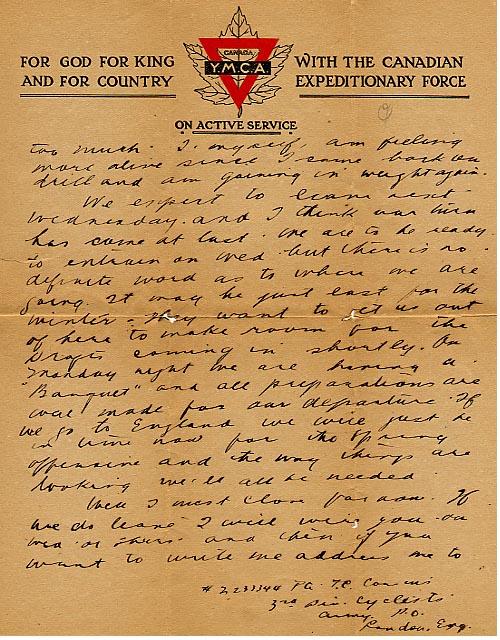 FOR GOD FOR KING
AND FOR COUNTRY
CANADA
Y.M.C.A
WITH THE CANADIAN
EXPEDITIONARY FORCE
ON ACTIVE SERVICE
too much. I, myself, am feeling
more alive since I came back on
drill and am gaining in weight again.
We expect to leave next
Wednesday and I think our turn
has come at last. We are to be ready
to entrain on Wed. but there is no
definite word as to where we are
going. It may be just east for the
winter - They want to get us out
of here to make room for the
Drafts coming in shortly. On
Monday night we are having a
"Banquet" and all preparations are
well made for our departure. If
we go to England we will just be
in time now for the Spring
offensive and the way things are
looking we'll all be needed.
Well I must close for now. If
we do leave I will wire you on
Wed. or Thurs. and then if you
want to write me address me to
# 2233344 Pte. T.C.
3rd Div. Cyclists
Army P.O.
London, Eng.